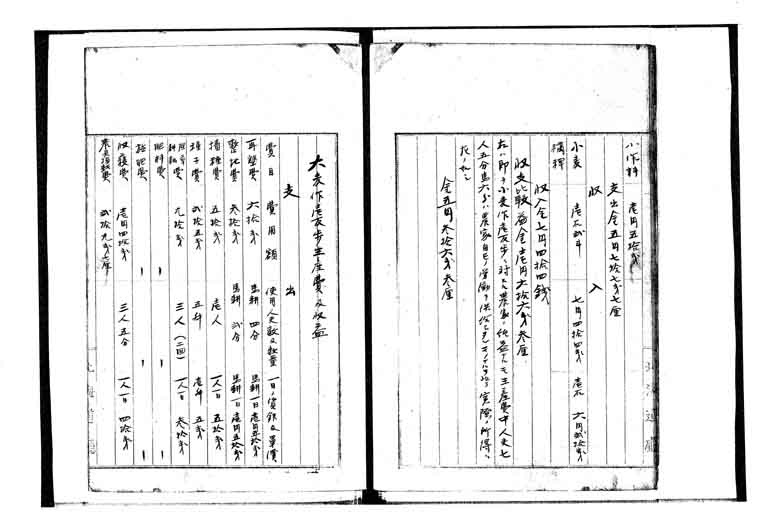 小作料 壱円五拾銭
支出金五円七拾七銭七厘
収 入
小麦 壱石弐斗 七円四拾四銭 壱石 六円弐拾銭
稈
収入金七円四拾四銭
収支比較益金壱円六拾六銭参厘
右ハ即チ小麦作壱反歩ニ対スル農家ノ純益ナルモ生産費中人夫七
人五分馬六分ハ農家自己ノ労働
金五円参拾六銭参厘
大麦作壱反歩生産費及収益
支 出
費目 費用額 使用人夫数及数量 一日ノ賃銀及単価
耕墾費 六拾銭 馬耕 四分 馬耕一日壱円五拾銭
整地費 参拾銭 馬耕 弐分 馬耕一日壱円五拾銭
播種費 五拾銭 壱人 一人一日 五拾銭
種子費 弐拾五銭 五升 壱升 五銭
九拾銭 三人(二回) 一人一日 参拾銭
肥料費
施肥費
収穫費 壱円四拾銭 三人五分 一人一日 四拾銭
弐拾九銭